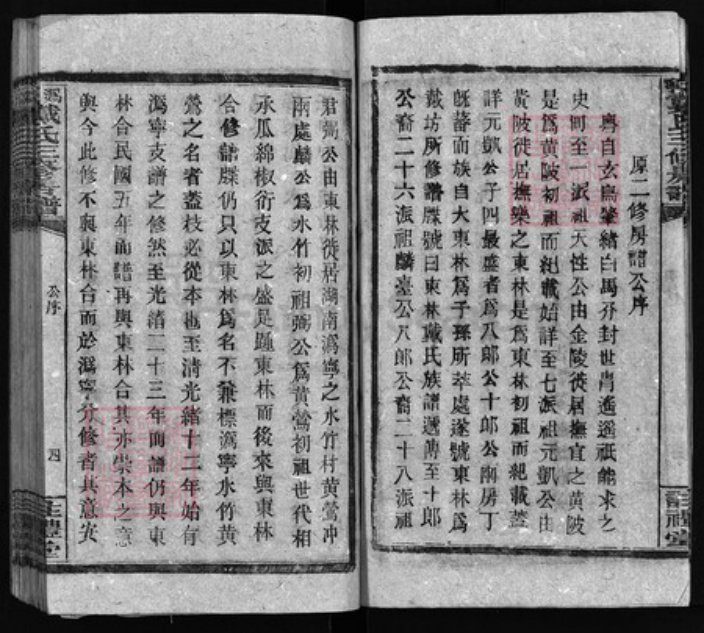 原二修房譜公序
粵自玄鳥肇緒白馬分封世胄遙遙祇能求之
史則至一派祖天性公由金陵徙居撫宜之黃陂
是爲黃陂初祖而紀載始詳至七派祖元凱公由
黃陂徙居撫樂之東林是爲東林初祖而紀載蓋
詳元凱公子四最盛者爲八郞公十郞公兩房丁
旣蕃而族自大東林爲子孫所萃處遂號東林爲
戴坊所修譜牒號曰東林戴氏族譜遞傳至十郞
公裔二十六派祖麟臺公八郞公裔二十八派祖
君弼公由東林徙居湖南潙寧之水竹村黃鶯冲
兩處麟公爲水竹初祖弼公爲黃鶯初祖世代相
承瓜綿椒衍支派之盛足踵東林而後來與東林
合修譜牒仍只以東林爲名不兼標潙寧水竹黃
鶯之名者蓋枝必從本也至淸光緖十三年始有
潙寧支譜之修然至光緖二十三年而譜仍與東
林合民國五年而譜再與東林合其亦崇本之意
與今此修不與東林合而於潙寧分修者其意安
潙 戴氏三修房譜
公序
四
注禮堂
戴氏三修房譜
注禮堂